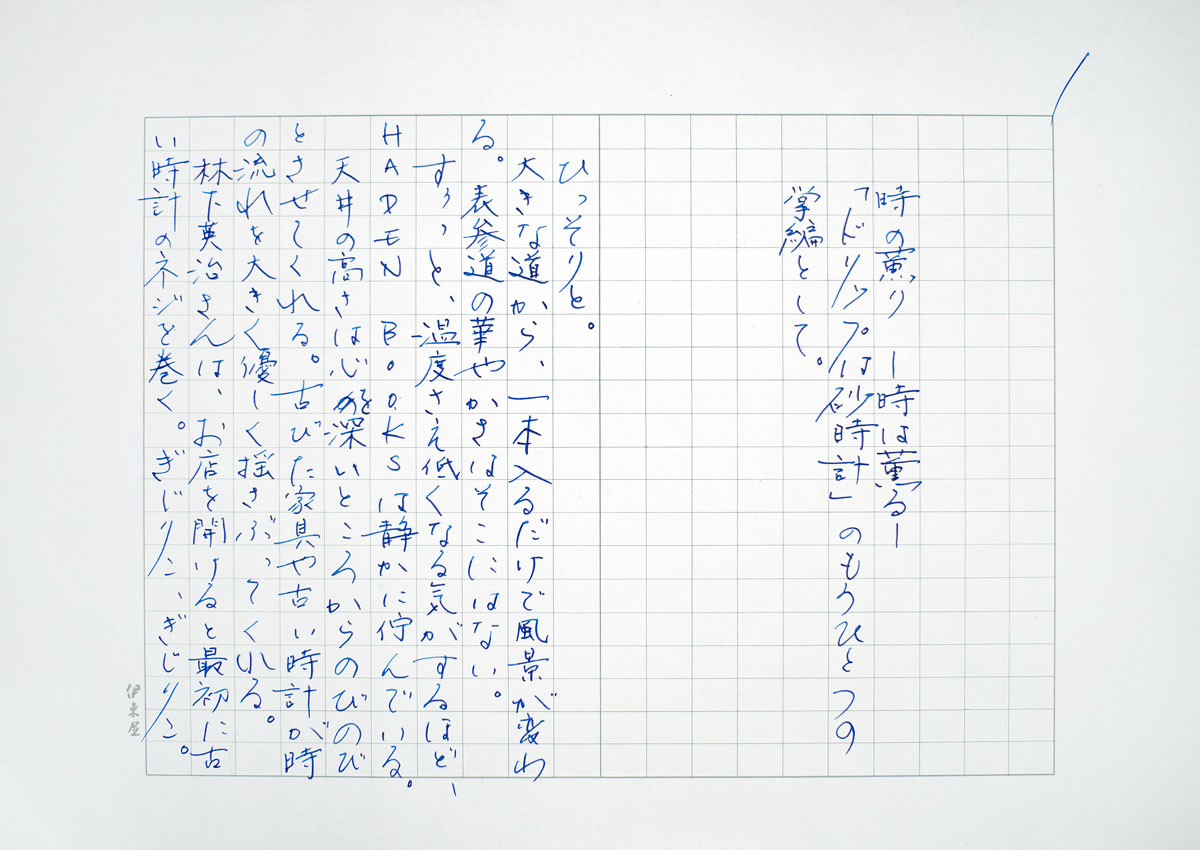 時の薫り ー時は薫るー
「ドリップは砂時計」のもうひとつの
掌編として。
ひっそりと。
大きな道から、一本入るだけで風景が変わ
る。表参道の華やかさはそこにはない。
すぅっと、温度さえ低くなる気がするほど、
HADEN BOOKSは静かに佇んでいる。
天井の高さは心を深いところからのびのび
とさせてくれる。古びた家具や古い時計が時
の流れを大きく優しく揺さぶってくれる。
林下英治さんは、お店を開けると最初に古
い時計のネジを巻く。ぎじりこ、ぎじりこ。
伊東屋